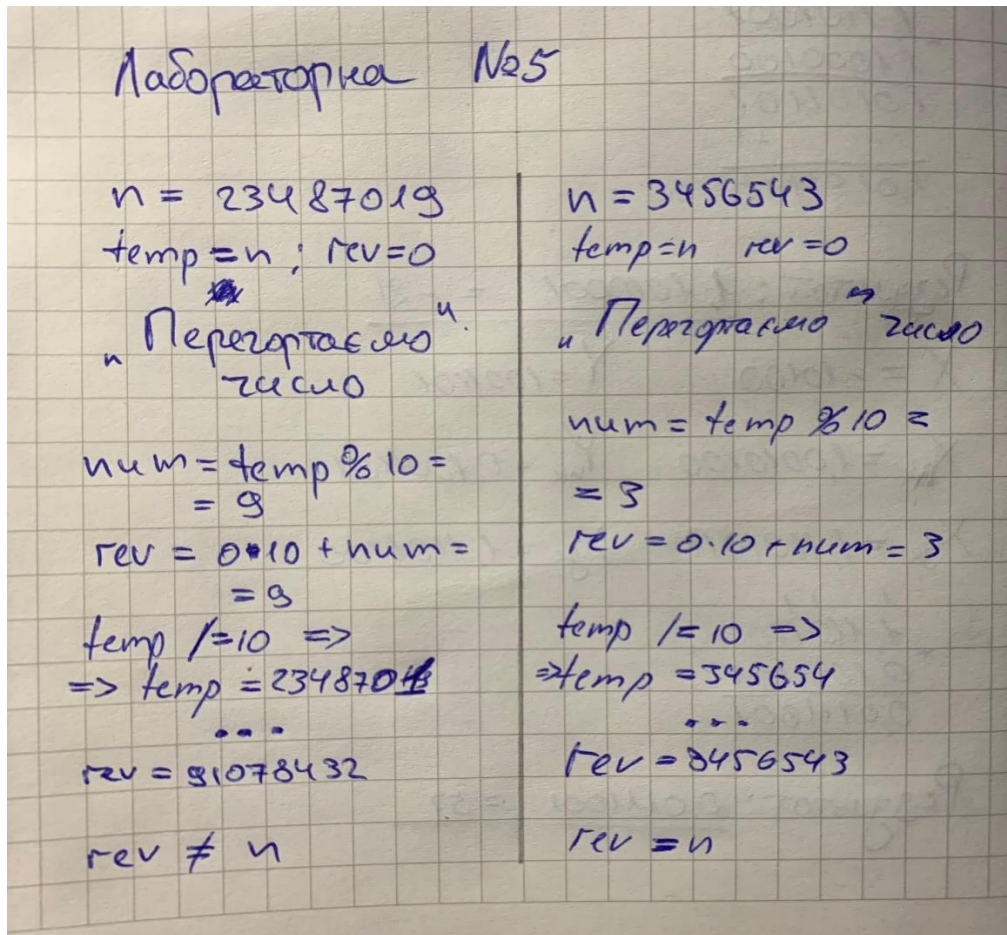 Лабораторна №5
n = 23487019
temp = n ; rev=0
„Перегортаємо“
число
num = temp % 10 =
= 9
rev = 0•10 + num =
= 9
temp /=10 =>
=> temp = 2348701
...
rev = 91078432
rev ≠ n
n = 3456543
temp=n rev=0
„Перегортаємо“ число
num = temp % 10 =
= 3
rev = 0·10 + num = 3
temp /= 10 =>
=> temp = 345654
...
rev = 3456543
rev = n